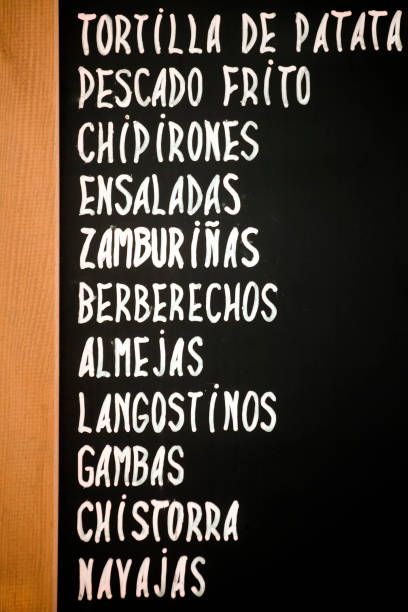 TORTILLA DE PATATA
PESCADO FRITO
CHIPIRONES
ENSALADAS
ZAMBURIÑAS
BERBERECHOS
ALMEJAS
LANGOSTINOS
GAMBAS
CHISTORRA
NAVAJAS